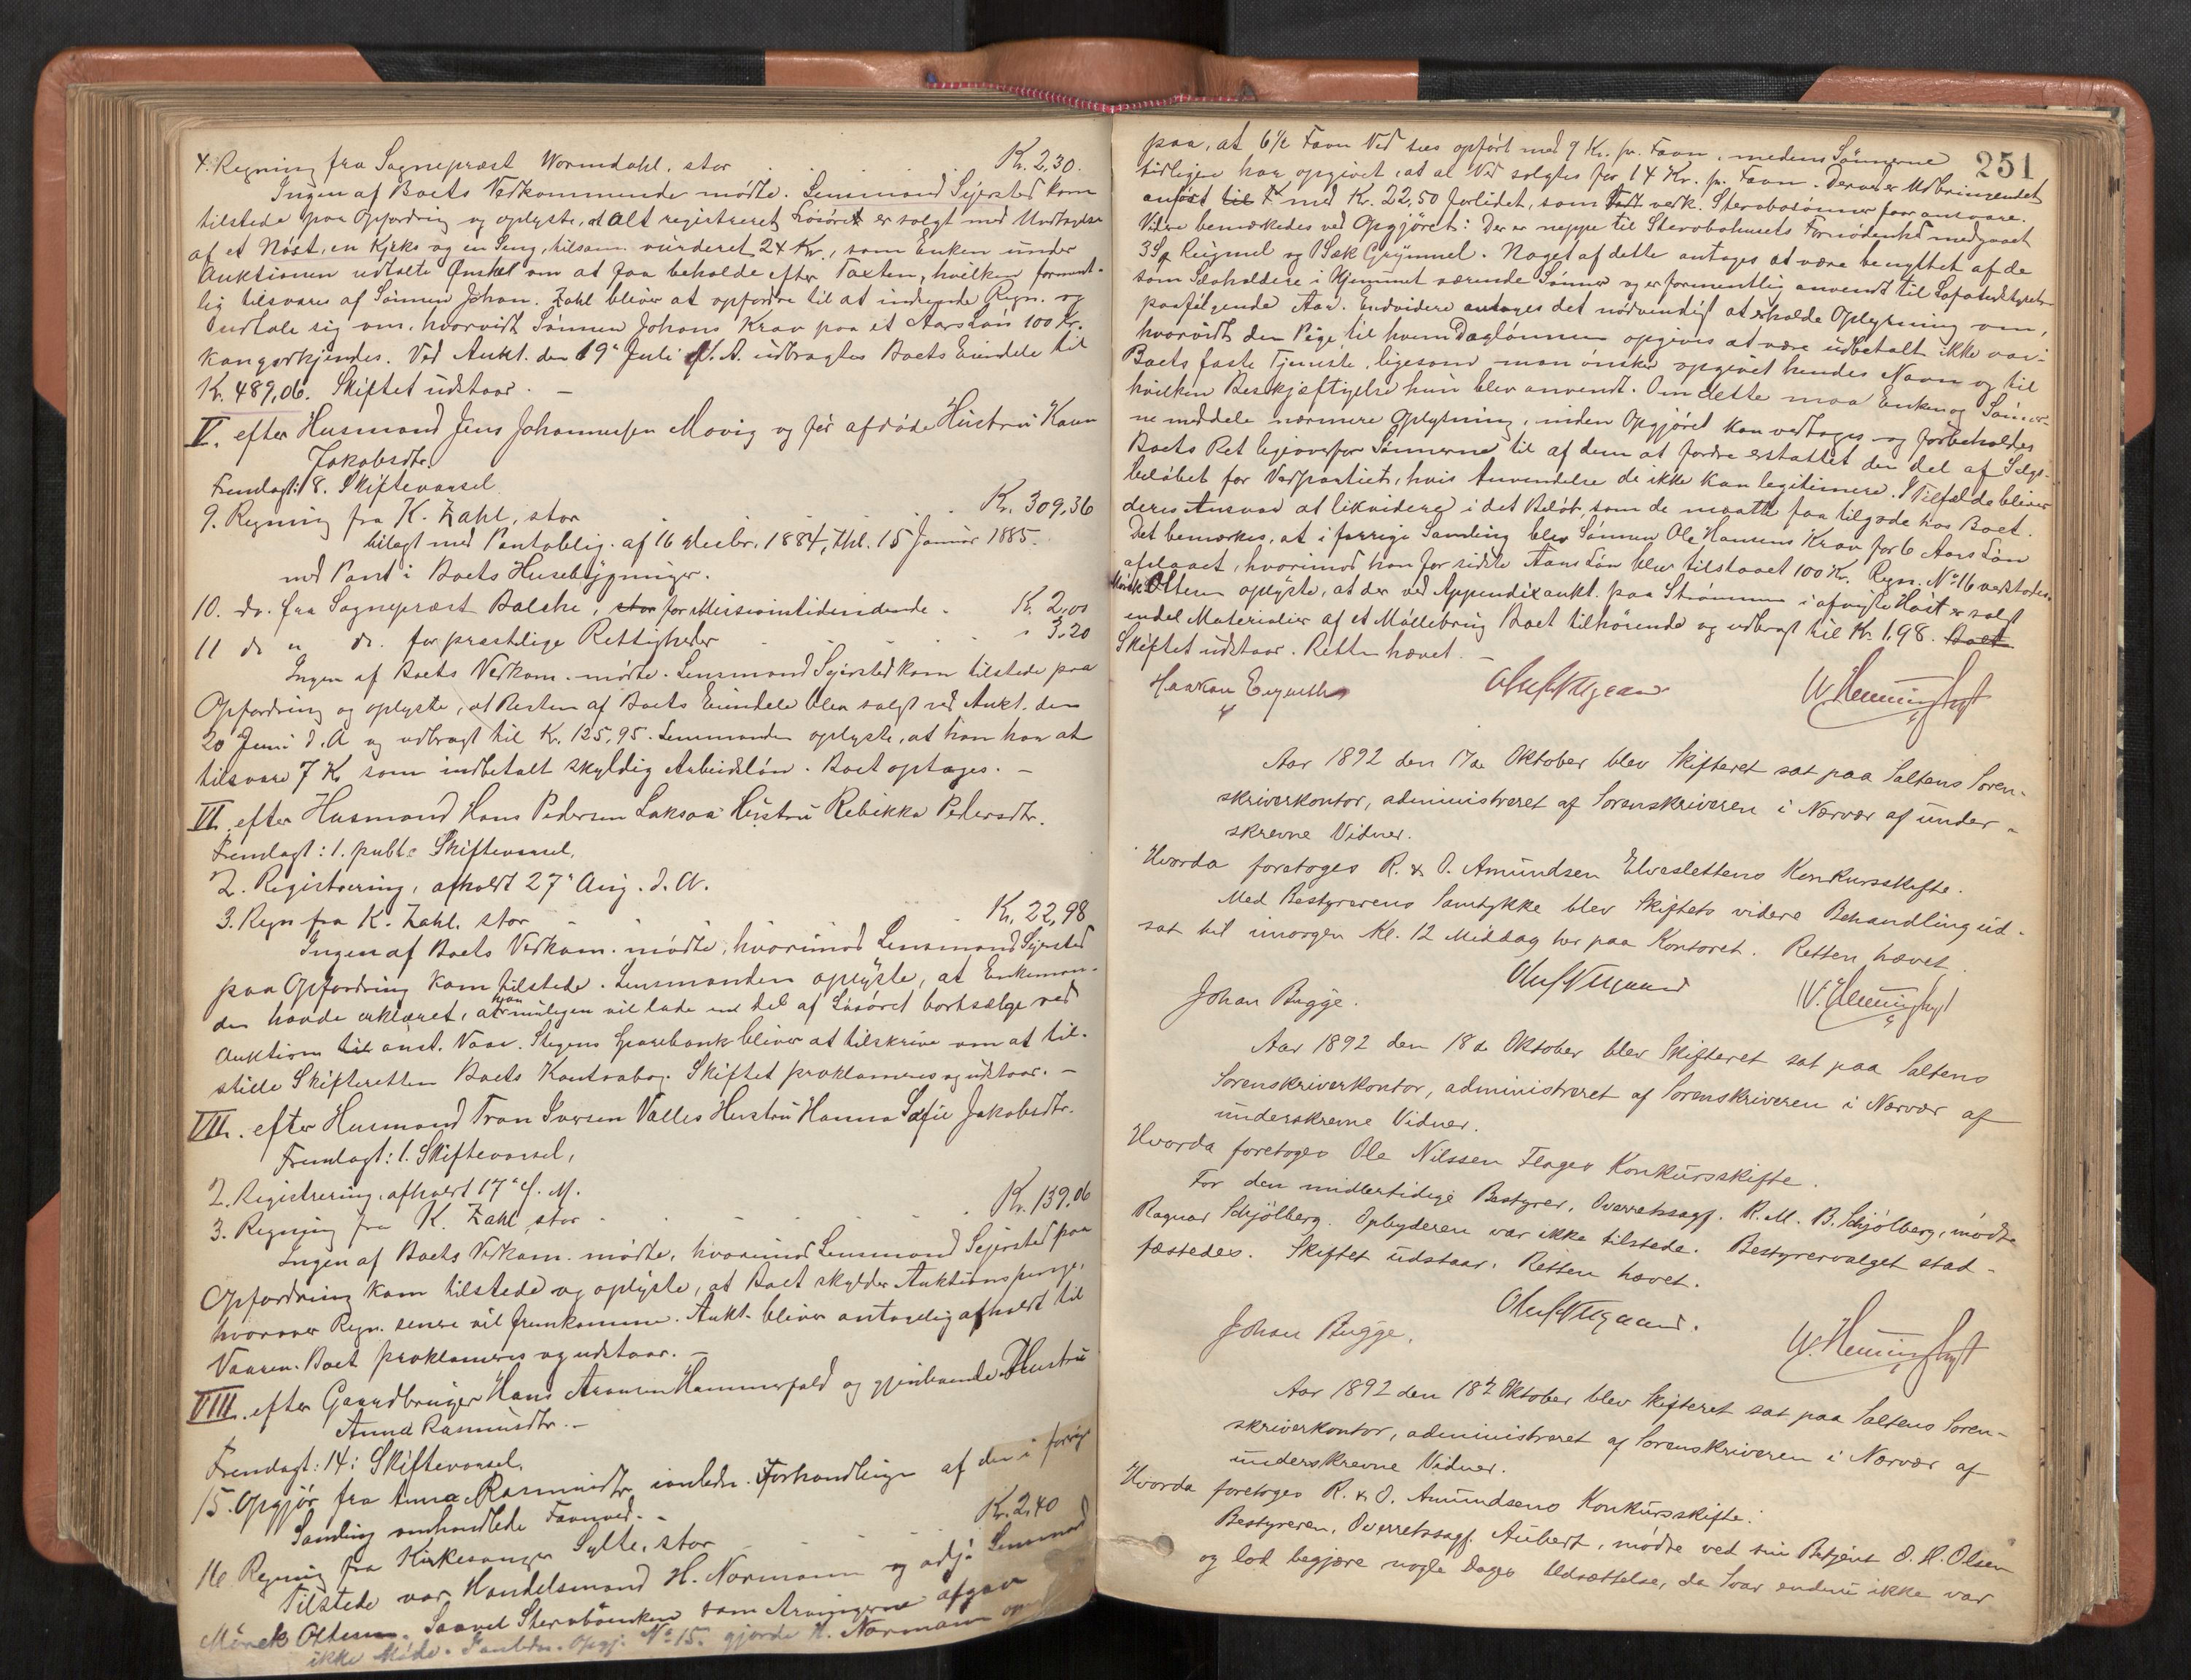 4. Regning fra Sognepræst Wormdahl, stor Kr. 2,30.
Ingen af Boets Vedkommende mødte. Lensmand Sejersted kom
tilstede paa Opfordring og oplyste, at alt registreret Løsøret er solgt med Undtagelse
af et Nøst, en Kjirke og en Seng, tilsam. vurderet 24 Kr., som Enken under
Auktionen udtalte Ønsket om at faa beholde efter Taxten, hvilken forment-
lig tilsvares af Sønnen Johan. Zahl bliver at opfordre til at indsende Regn. og
udtale sig om, hvorvidt Sønnen Johans Krav paa et Aars Løn 100 Kr.
kan godkjendes. Ved Aukt. den 19de Juli d. A. udbragtes Boets Eiendele til
Kr. 489,06. Skiftet udstaar. –
V. efter Husmand Jens Johannesen Movig og før afdøde Hustru Karn
Jakobsdtr.
Fremlagt: 8. Skiftevarsel
9. Regning fra K. Zahl, stor Kr. 309,36
bilagt med Pantoblig. af 16 Decbr. 1884, thl. 15 Januar 1885.
med Pant i Boets Husebygninger.
10. do. fra Sognepræst Balche, stor for Missionstidende Kr. 2,00
11 do " do. for præstelige Rettigheder " 3,20
Ingen af Boets Vedkom. mødte. Lensmand Sejersted kom tilstede paa
Opfordring og oplyste, at Resten af Boets Eiendele blev solgt ved Aukt. den
20 Juni d. A og udbragt til Kr. 125,95. Lensmanden oplyste, at han har at
tilsvare 7 Kr som indbetalt skyldig Arbeidsløn. Boet optages. –
VI. efter Husmand Hans Pedersen Laksaa Hustru Rebikka Pedersdtr.
Fremlagt: 1. publ. Skiftevarsel,
2. Registrering, afholdt 27de Aug. d. A.
3. Regn fra K. Zahl, stor Kr. 22,98
Ingen af Boets Vedkom. mødte, hvorimod Lensmand Sejersted
paa Opfordring kom tilstede. Lensmanden oplyste, at Enkeman-
den havde erklæret, at han muligen vil lade en del af Løsøret bortsælge ved
Auktion til anst. Vaar. Stegens Sparebank bliver at tilskrive om at til-
stille Skifteretten Boets Kontrabog. Skiftet proklameres og udstaar. –
VII. efter Husmand Tron Iversen Valles Hustru Hanna Sofie Jakobsdtr.
Fremlagt: 1. Skiftevarsel,
2. Registrering, afholdt 17de f. M.
3. Regning fra K. Zahl, stor Kr. 139,06
Ingen af Boets Vedkom. mødte, hvorimod Lensmand Sejersted paa
Opfordring kom tilstede og oplyste, at Boet skylder Auktionspenge,
hvorover Regn. senere vil fremkomme. Aukt. bliver antagelig afholdt til
Vaaren. Boet proklameres og udstaar. –
VIII. efter Gaardbruger Hans Aronsen Hammerfald og gjenlevende Hustru
Anna Rasmusdtr. –
Fremlagt: 14: Skiftevarsel,
15. Opgjør fra Anna Rasmusdtr. ianledn. Forhandlingen af den i forrige
Samling omhandlede Favnved. –
16 Regning fra Kirkesanger Sylte, stor Kr. 2,40
Tilstede var Handelsmand H. Normann og adj. Lensmand
Mørck Ottesen. Saavel Stervboenken som Arvingerne afgav
ikke Møde. Ianledn. Opgj. No 15. gjorde H. Normann op-
251
paa, at 6½ Favn Ved sees opført med 9 Kr. pr. Favn, medens Sønnerne
tidligere har opgivet, at al Ved solgtes for 14 Kr. pr. Favn. Derved er Udbringendet
anført til med Kr. 22,50 forlidet, som vedk. Stervbosønner faar ansvare.
Videre bemærkedes ved Opgjøret: Der er neppe til Stervbohusets Fornødenhed medgaaet
3 Sk Rugmel og 1 Sæk Grynmel. Noget af dette antages at være benyttet af de
som Løsholdere i Hjemmet værende Sønner og er formentlig anvendt til Lofotudstyret
paafølgende Aar. Endvidere antages det nødvendigt at erholde Oplysning om,
hvorvidt den Pige, til hvem Dagløn opgives at være udbetalt ikke var i
Boets faste Tjeneste, ligesom man ønsker opgivet hendes Navn og til
hvilken Beskjæftigelse hun blev anvendt. Om dette maa Enken og Sønner-
ne meddele nærmere Oplysning, inden Opgjøret kan vedtages og forbeholdes
Boets Ret ligeoverfor Sønnerne til af dem at fordre erstattet den del af Salgs-
beløbet for Vedpartiet, hvis Anvendelse de ikke kan legitimere. I Tilfælde bliver
deres Ansvar at likvidere i det Beløb, som de maatte faa tilgode hos Boet.
Det bemærkes, at i forrige Samling blev Sønnen Ole Hansens Krav for 6 Aars Løn
afslaaet, hvorimod han for sidste Aars Løn blev tilstaaet 100 Kr. Regn. No 16 vedtoges.
Mørck Ottesen oplyste, at der ved Appendixaukt. paa Strømmen i afvigte Høst er solgt
endel Materialier af et Møllebrug Boet tilhørende og udbragt til Kr. 1,98. Boet
Skiftet udstaar. Retten hævet. –
Haakon W. Henningstoft
Aar 1892 den 17de Oktober blev Skifteret sat paa Saltens Soren-
skriverkontor, administreret af Sorenskriveren i Nærvær af under-
skrevne Vidner.
Hvorda foretoges R. & O. Amundsen Elveslettens Konkursskifte.
Med Bestyrerens Samtykke blev Skiftets videre Behandling ud-
sat til imorgen Kl. 12 Middag her paa Kontoret. Retten hævet.
Johan Bugge. W. Henningstoft
Aar 1892 den 18de Oktober blev Skifteret sat paa Saltens
Sorenskriverkontor, administreret af Sorenskriveren i Nærvær af
underskrevne Vidner.
Hvorda foretoges Ole Nilssen Flages Konkursskifte.
For den midlertidige Bestyrer, Overretssagf. R. M. B. Schjølberg, mødte
Ragnar Schjølberg. Opbyderen var ikke tilstede. Bestyrervalget stad-
fæstedes. Skiftet udstaar. Retten hævet.
Johan Bugge. W. Henningstoft
Aar 1892 den 18de Oktober blev Skifteret sat paa Saltens Soren-
skriverkontor, administreret af Sorenskriveren i Nærvær af
underskrevne Vidner.
Hvorda foretoges R. & O. Amundsens Konkursskifte.
Bestyreren, Overretssagf. Aubert, mødte ved sin Betjent O. H. Olsen
og lod begjære nogle Dages Udsættelse, da Svar endnu ikke var